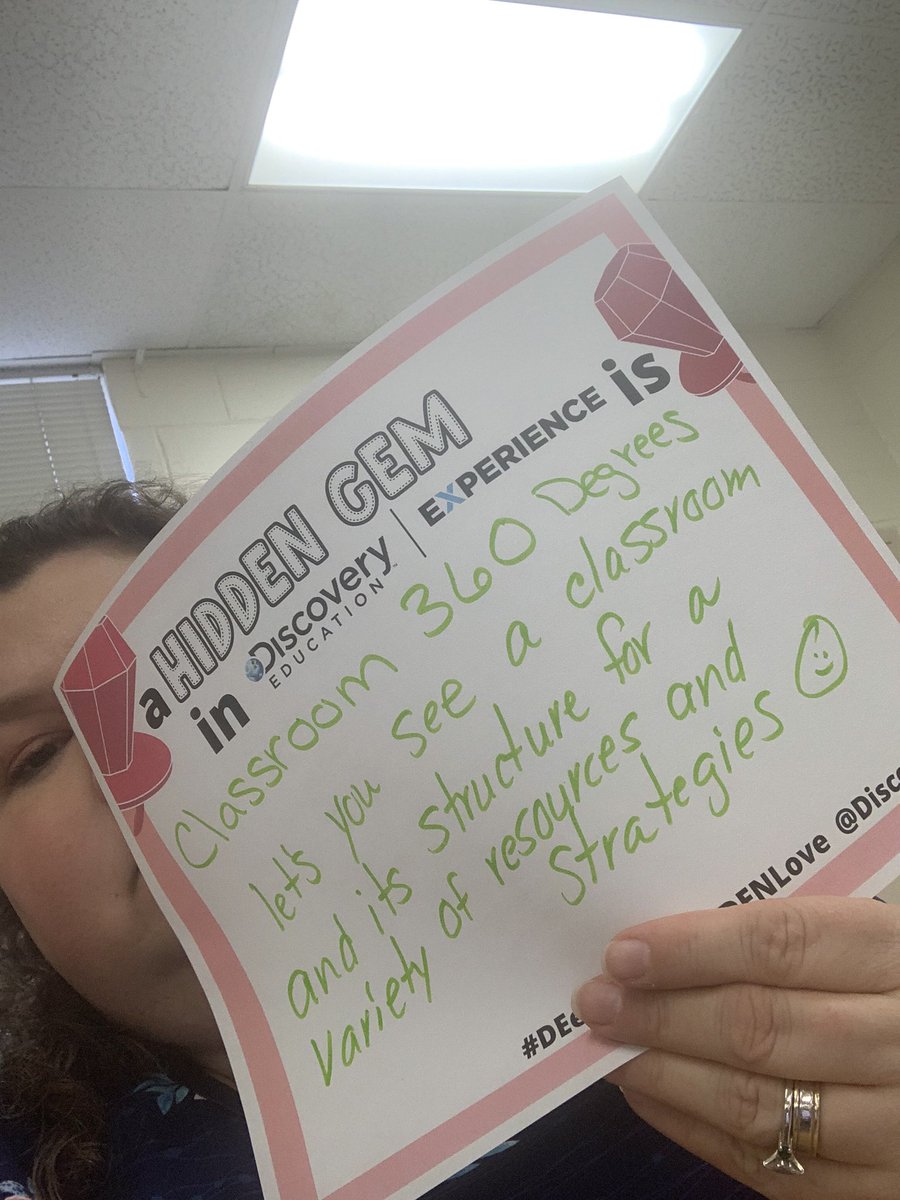 a HIDDEN GEM
in Discovery EDUCATION™ | EXPERIENCE is
Classroom 360 Degrees
let's you see a classroom
and its structure for a
variety of resources and
strategies